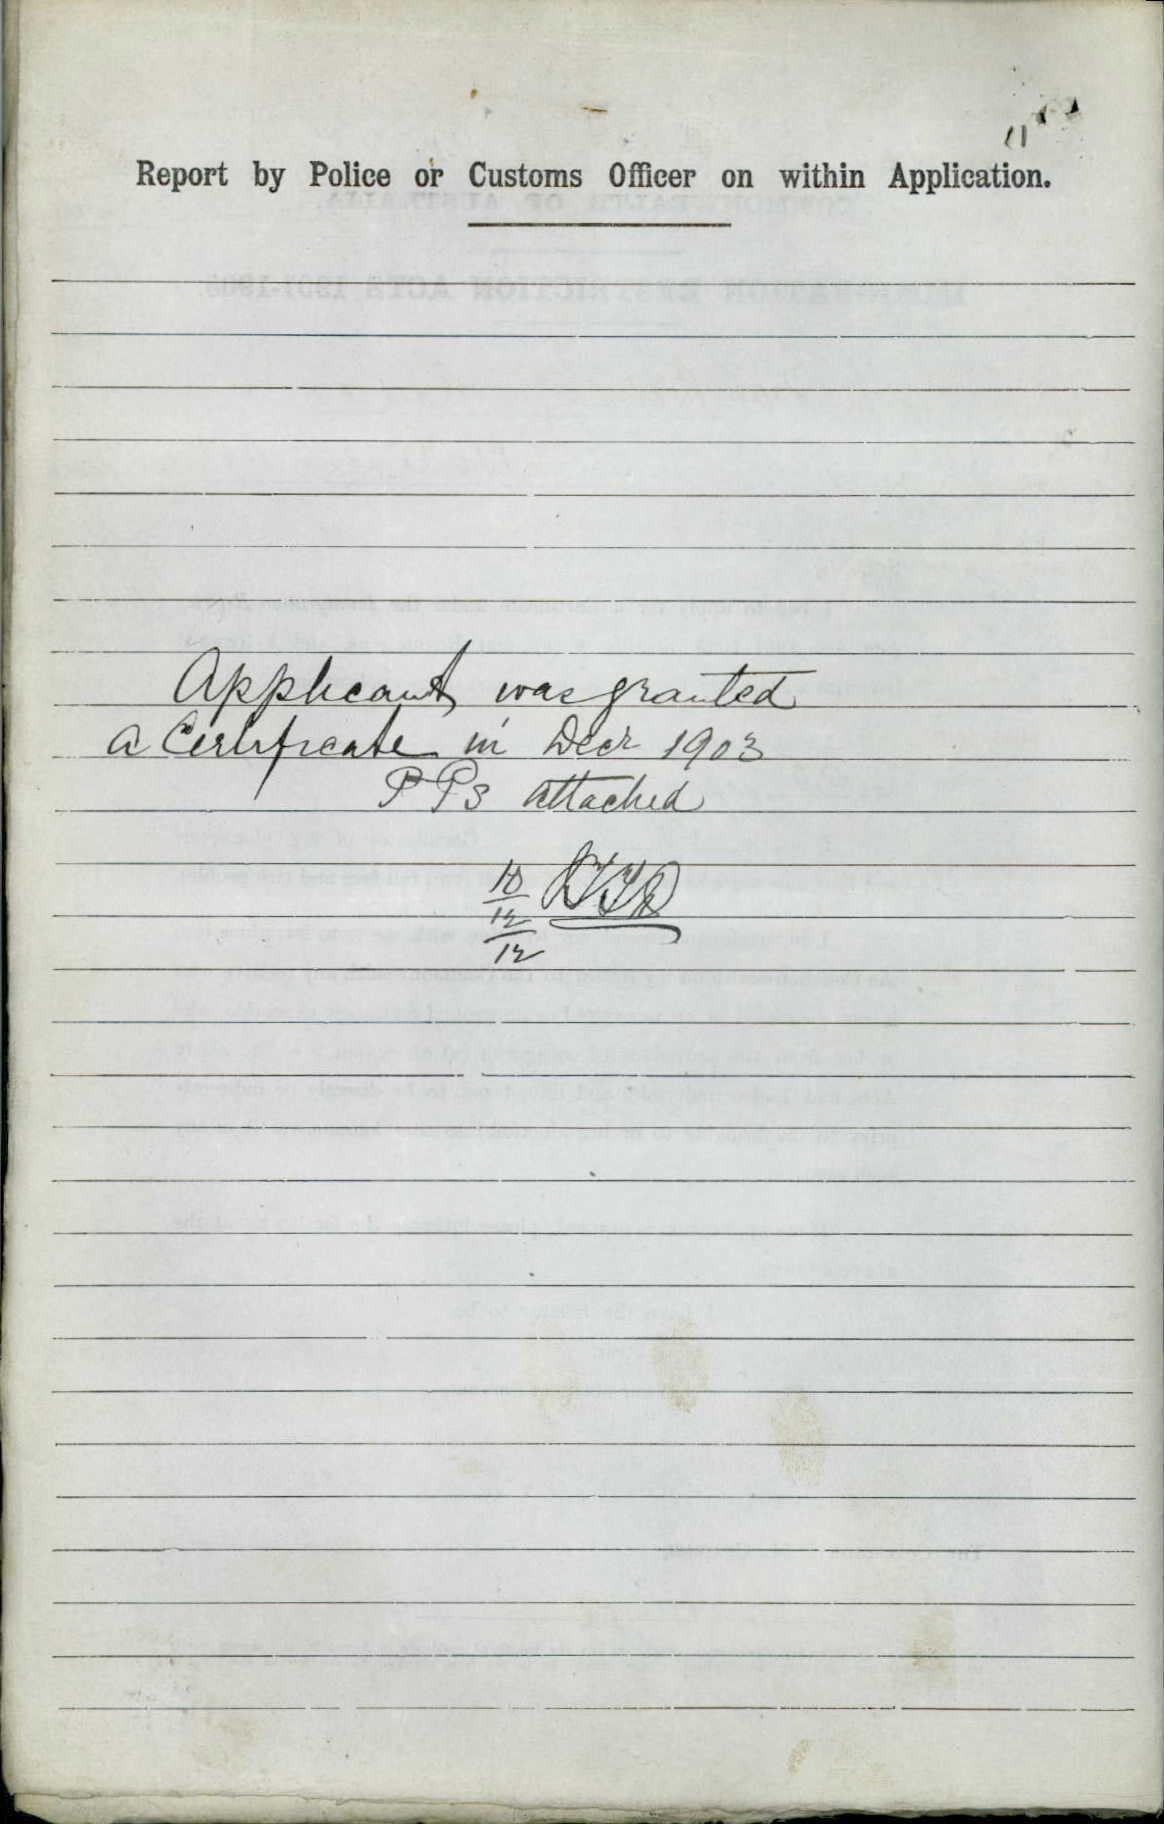 Report by Police or Customs Officer on within Application.
Applicant was granted
a Certificate in Decr 1903
PPs attached
12
12